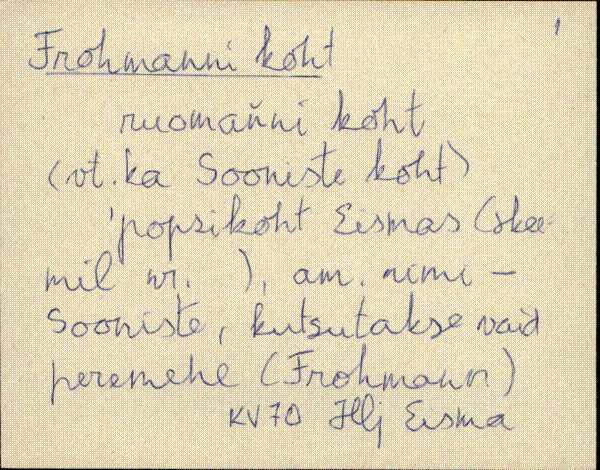 1
Frohmanni koht
ruomaňni koht
(vt. ka Sooniste koht)
'popsikoht Eismas (skee-
mil nr.   ), am. nimi –
Sooniste, kutsutakse vaid
peremehe (Frohmann)
KV 70 Hlj Eisma